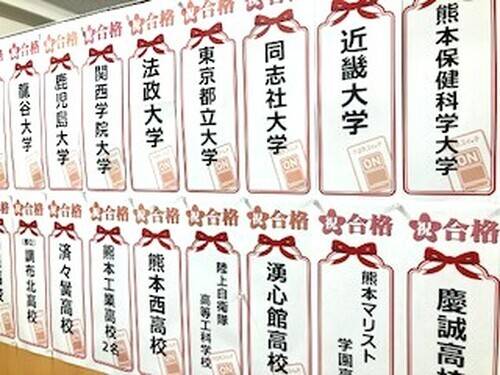 合格
龍谷大学
合格
鹿児島大学
合格
関西学院大学
合格
法政大学
合格
東京都立大学
合格
同志社大学
近畿大学
熊本保健科学大学
ON
ON
ON
合格
調布北高校
合格
済々黌高校
合格
熊本工業高校
2名
祝合格
熊本西高校
祝合格
陸上自衛隊
高等工科学校
祝合格
湧心館高校
祝合格
熊本マリスト
学園高
祝合格
慶誠高校